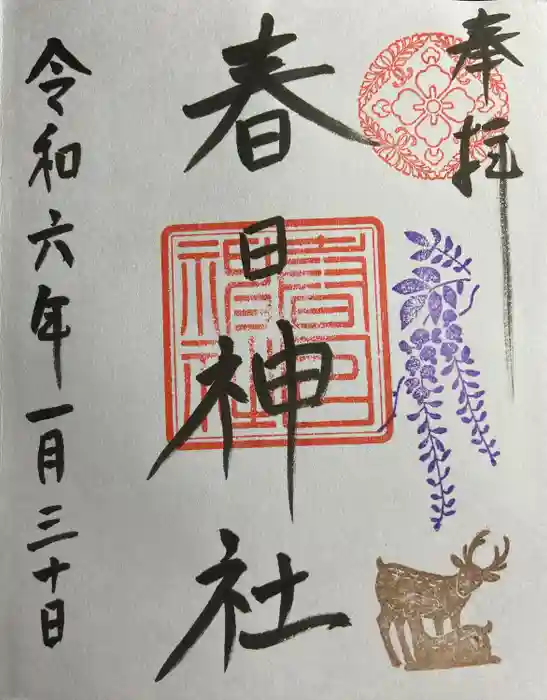 奉拝
春日神社
春日神社
令和六年一月三十日